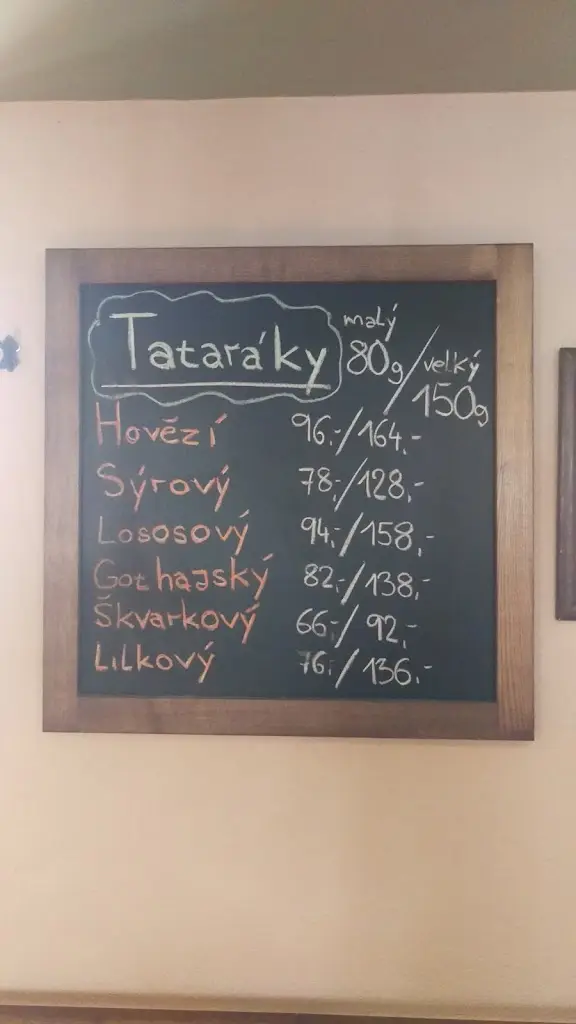 Tataráky
malý 80g / velký 150g
Hovězí 96,-/164,-
Sýrový 78,-/128,-
Lososový 94,-/158,-
Gothajský 82,-/138,-
Škvarkový 66,-/92,-
Lilkový 76,-/136,-